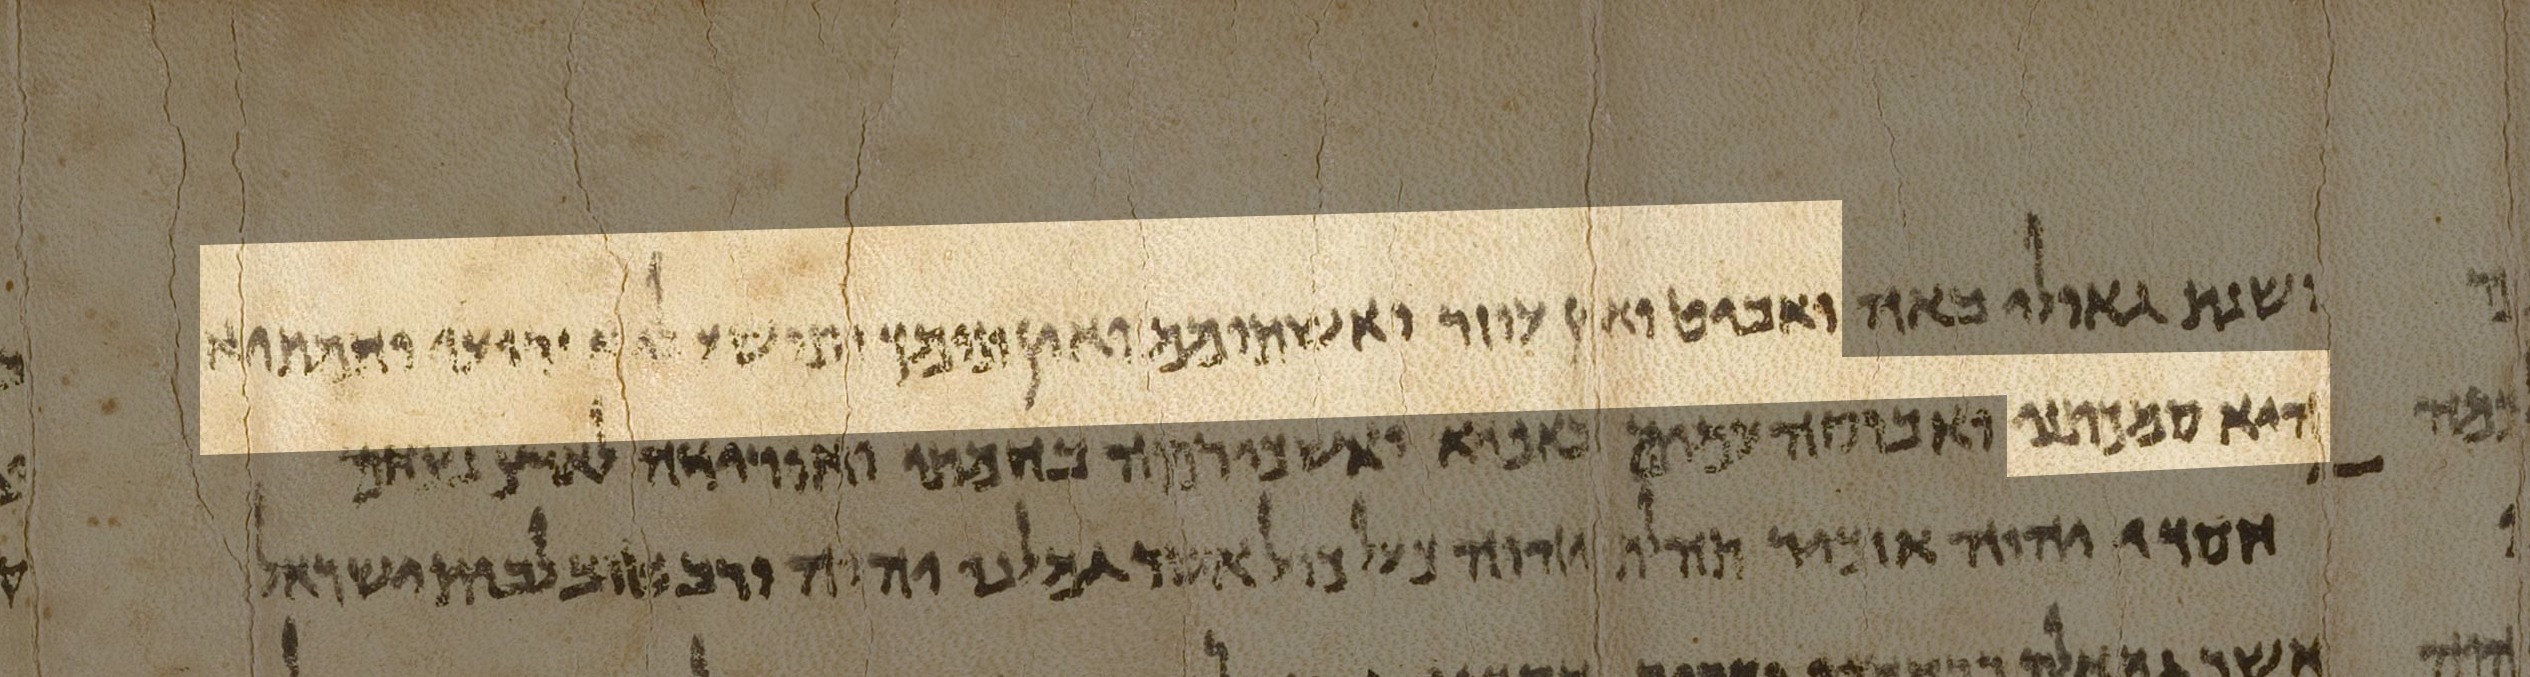 ושנת גאולי באה ואביט ואין עוזר ואשתומם ואין תומך ותושע ליא זרועי וחמתיא
היא סמכתני ואבוסה עמים באפיא ואשכירמה בחמתי ואורידה לארץ נצחם
חסדי יהוה אזכיר יהוה כעל כול אשר גמלנו יהוה ורב טוב לבית ישראל
אשר גמלם